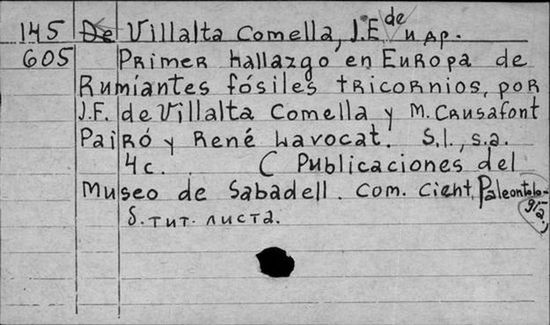 145 De Villalta Comella, J.E de и др.
605 Primer hallazgo en Europa de
Rumiantes fósiles tricornios, por
J.F. de Villalta Comella y M. Crusafont
Pairó y René Lavocat. S.l., s.a.
4 с. ( Publicaciones del
Museo de Sabadell. Com. Cient. Paleontolo-
gía.)
б. тит. листа.